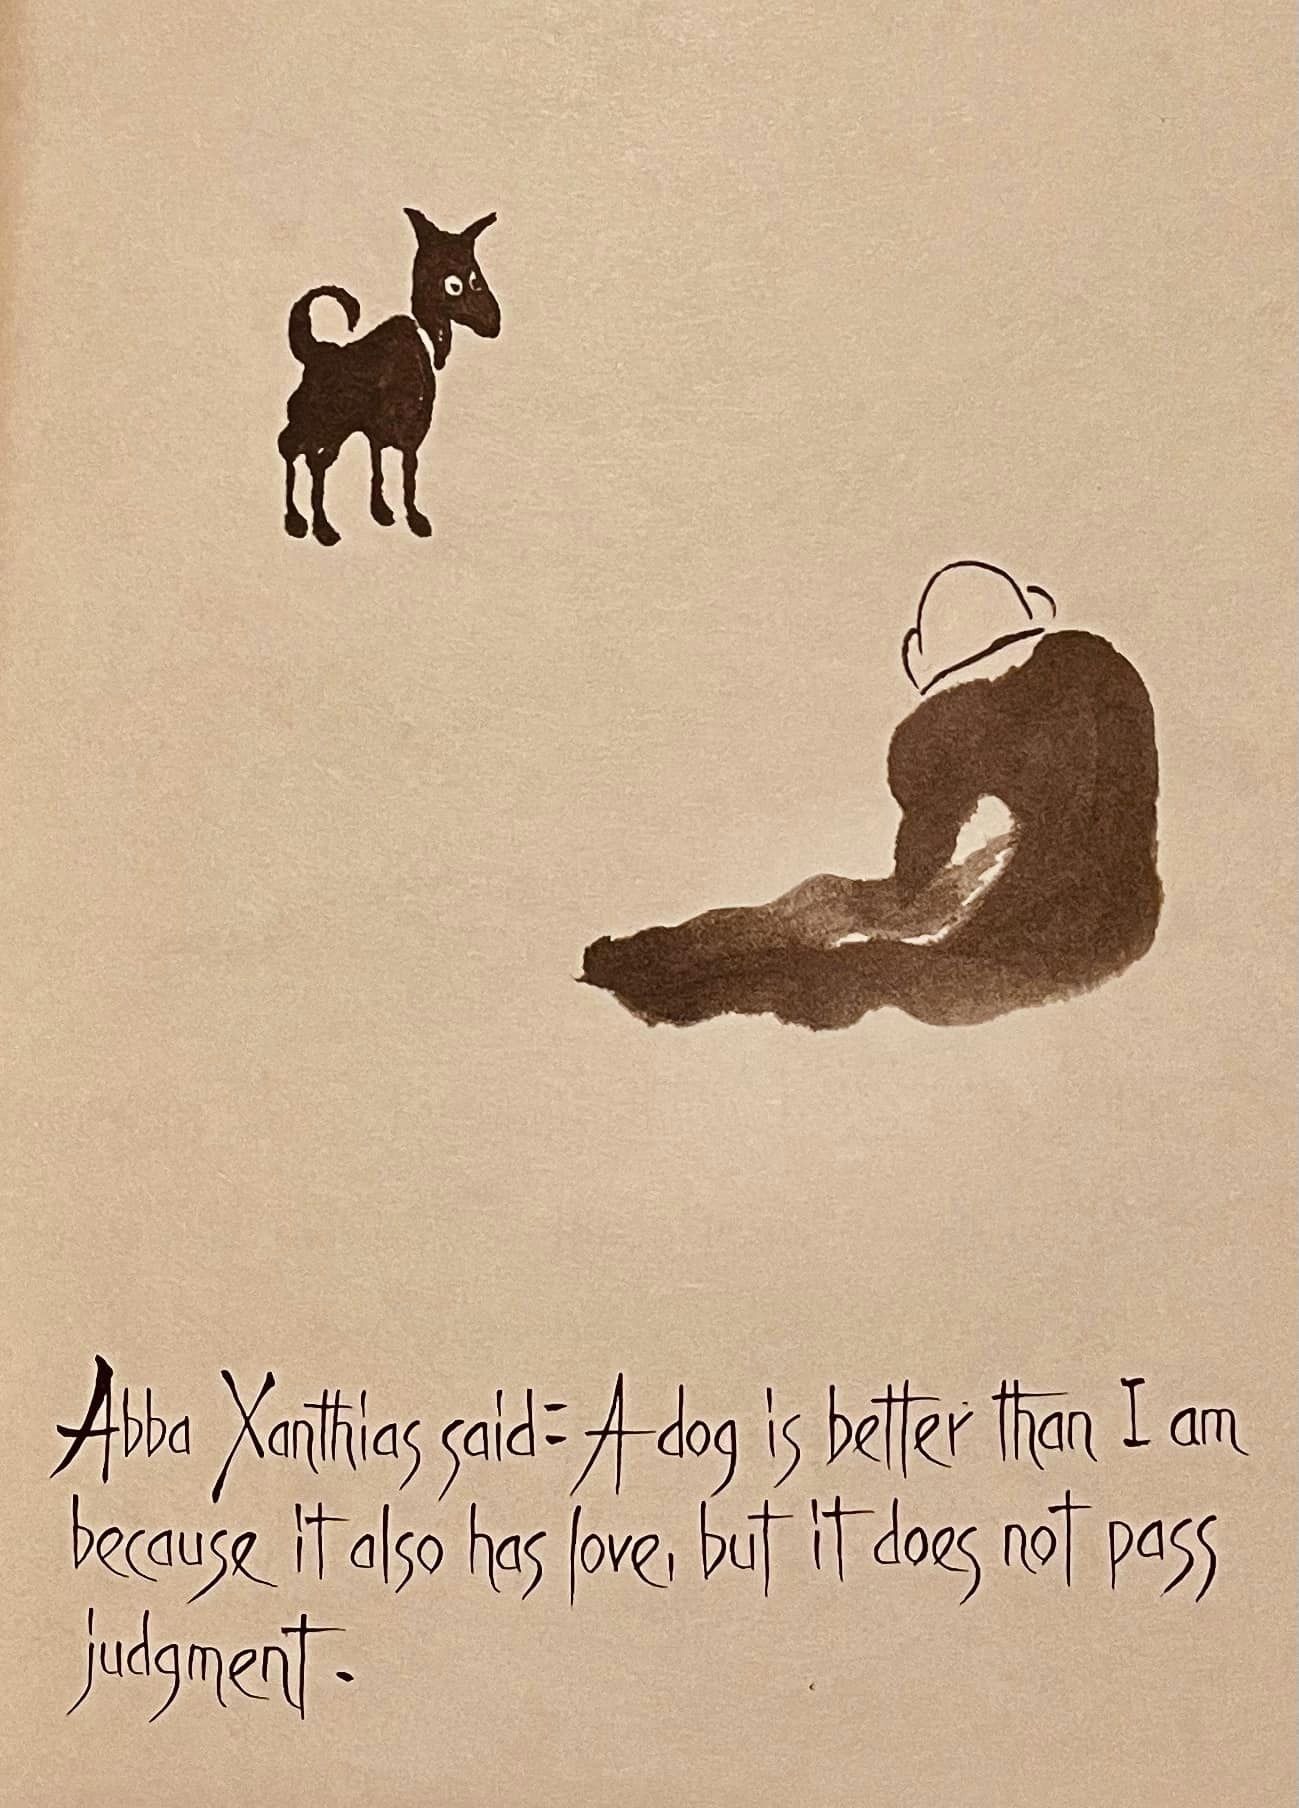 Abba Xanthias said: A dog is better than I am
because it also has love, but it does not pass
judgment.